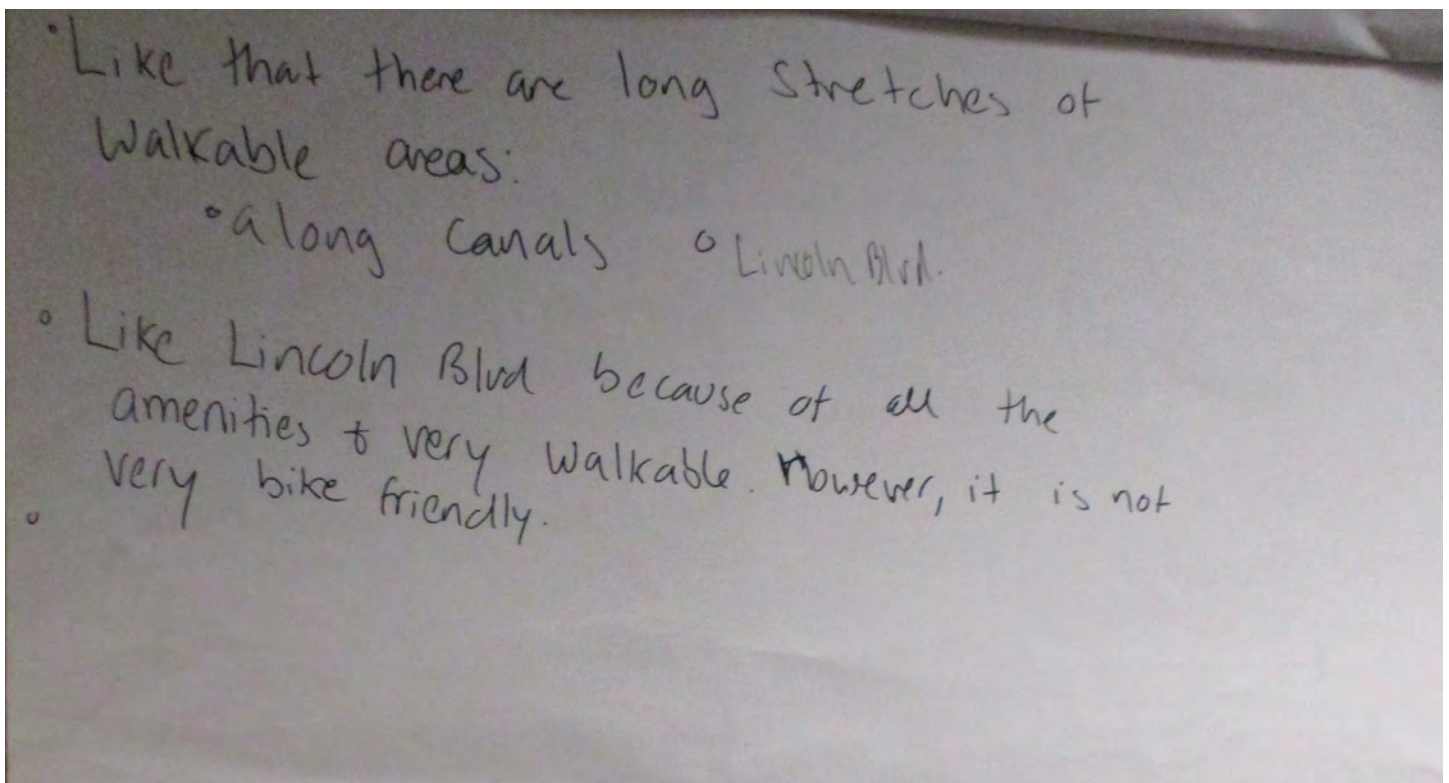 • Like that there are long stretches of
Walkable areas:
• along Canals ◦ Lincoln Blvd.
◦ Like Lincoln Blvd because of all the
amenities & very walkable. However, it is not
very bike friendly.
◦